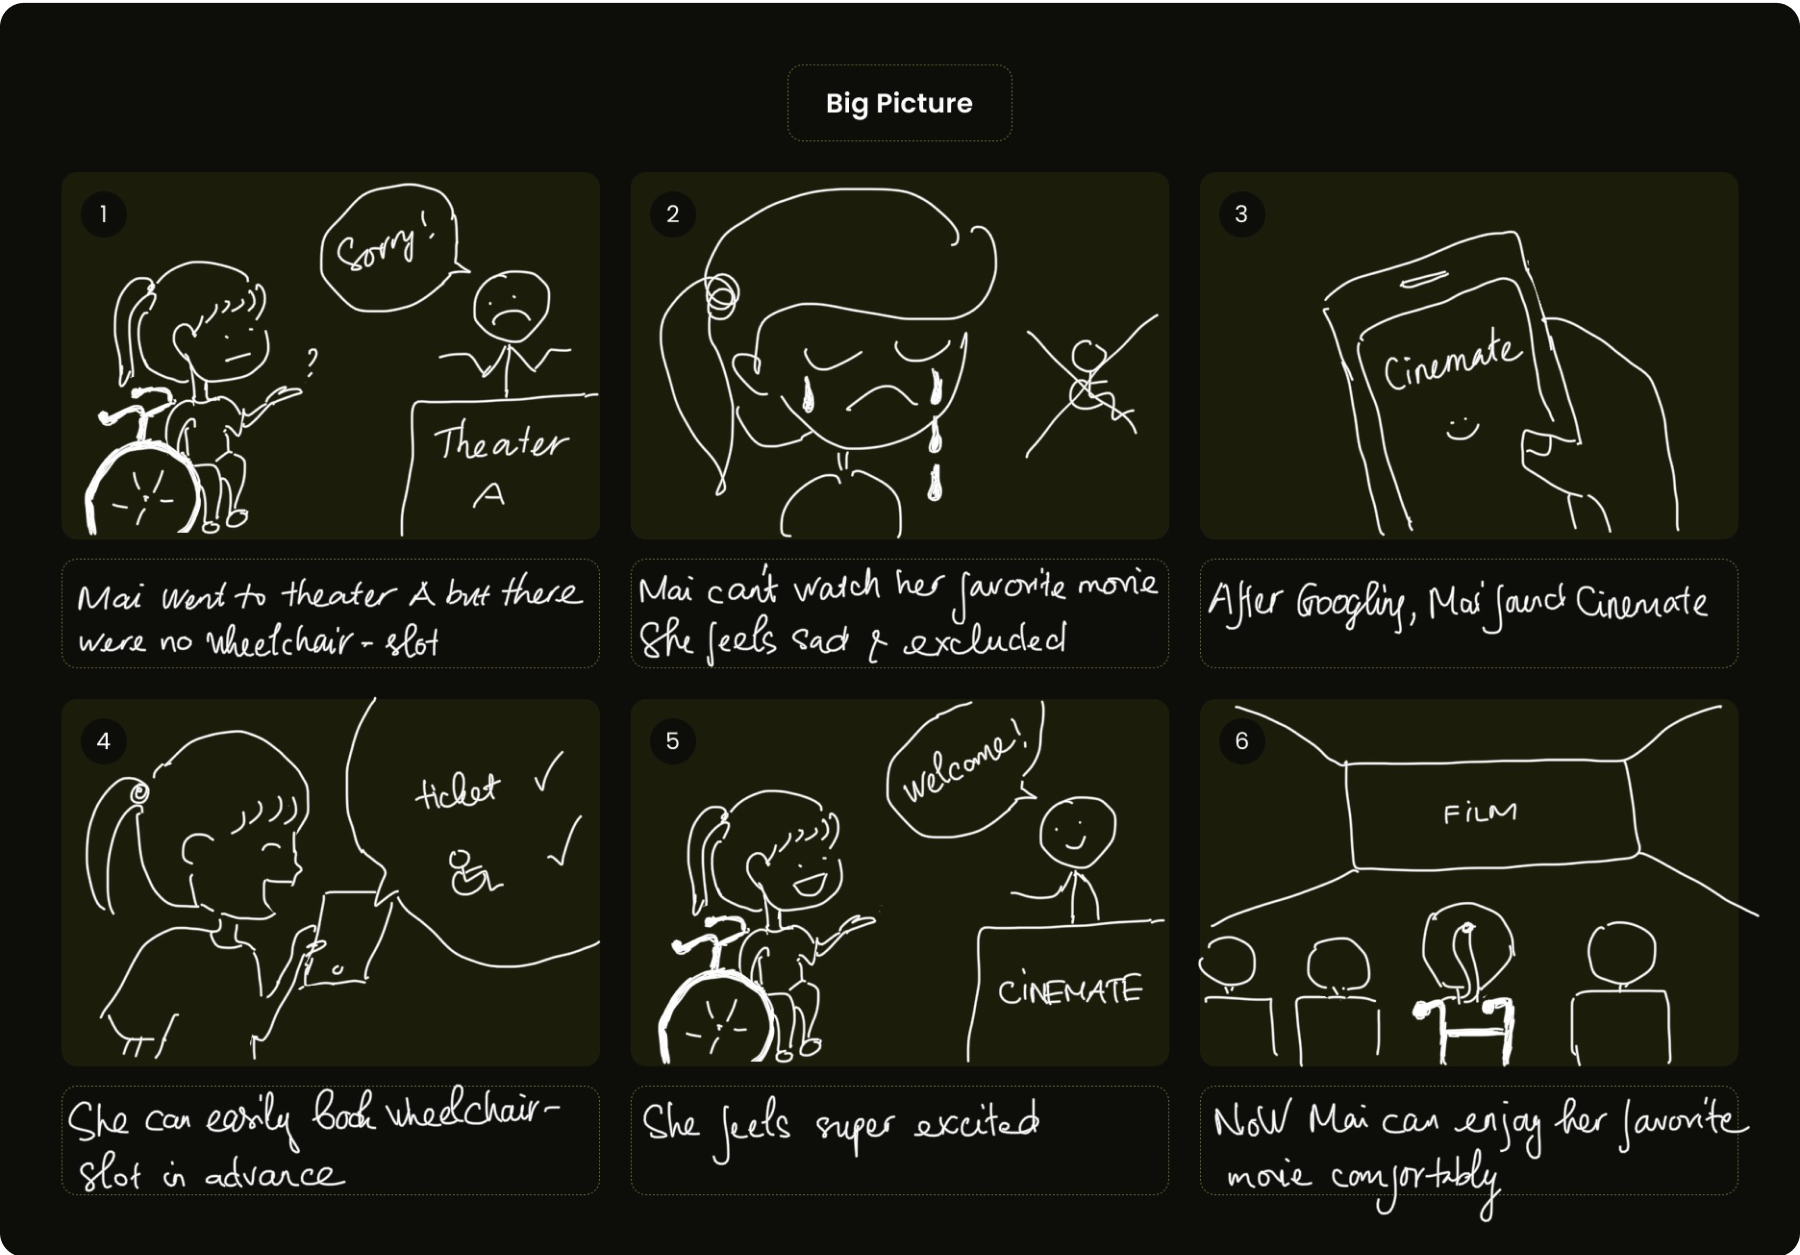 Big Picture
1
Sorry!
?
Theater
A
Mai went to theater A but there
were no wheelchair - slot
2
Mai can't watch her favorite movie
She feels sad & excluded
3
Cinemate
After Googling, Mai found Cinemate
4
ticket ✓
✓
She can easily book wheelchair-
slot in advance
5
Welcome!
CINEMATE
She feels super excited
6
FILM
NOW Mai can enjoy her favorite
movie comfortably